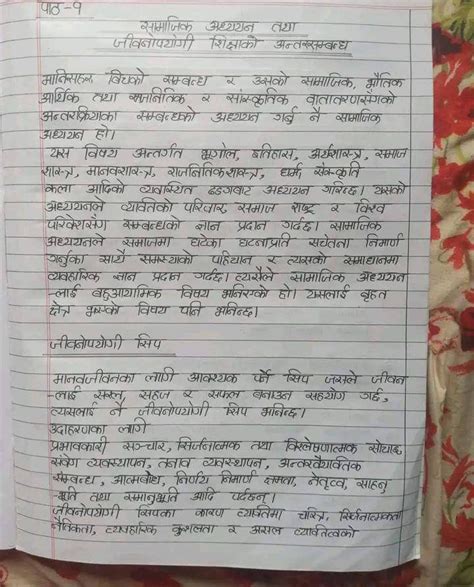 पाठ-१
सामाजिक अध्ययन तथा
जीवनोपयोगी शिक्षाको अन्तरसम्बन्ध
मानिसहरू बिचको सम्बन्ध र उसको सामाजिक, भौतिक
आर्थिक तथा राजनितिक र सांस्कृतिक वातावरणसँगको
अन्तरक्रियाका सम्बन्धको अध्ययन गर्नु नै सामाजिक
अध्ययन हो।
यस विषय अन्तर्गत भूगोल, इतिहास, अर्थशास्त्र, समाज
शास्त्र, मानवशास्त्र, राजनितिकशास्त्र, धर्म, संस्कृति
कला आदिको व्यवस्थित ढङगबाट अध्ययन गरिन्छ। यसको
अध्ययनले व्यक्तिको परिवार, समाज राष्ट्र र विश्व
परिवेशसँग सम्बन्धको ज्ञान प्रदान गर्दछ। सामाजिक
अध्ययनले समाजमा घटेका घटनाप्रति सचेतना निर्माण
गर्नुका साथै समस्याको पहिचान र त्यसको समाधानमा
व्यवहारिक ज्ञान प्रदान गर्दछ। त्यसैले सामाजिक अध्ययन
-लाई बहुआयामिक विषय भनिएको हो। यसलाई बृहत
क्षेत्र भएको विषय पनि भनिन्छ।
जीवनोपयोगी सिप
मानवजीवनका लागी आवश्यक पर्ने सिप जसले जीवन
-लाई सरल, सहज र सफल बनाउन सहयोग गर्छ,
त्यसलाई नै जीवनोपयोगी सिप भनिन्छ।
उदाहरणका लागी
प्रभावकारी सञ्चार, सिर्जनात्मक तथा विश्लेषणात्मक सोचाइ,
संवेग व्यवस्थापन, तनाव व्यवस्थापन, अन्तरवैयक्तिक
सम्बन्ध, आत्मबोध, निर्णय निर्माण क्षमता, नेतृत्व, सहनु
-भूति तथा समानुभूति आदि पर्दछन्।
जीवनोपयोगी सिपका कारण व्यक्तिमा चरित्र, सिर्जनात्मकता
नैतिकता, व्यवहारिक कुशलता र असल व्यक्तित्वको